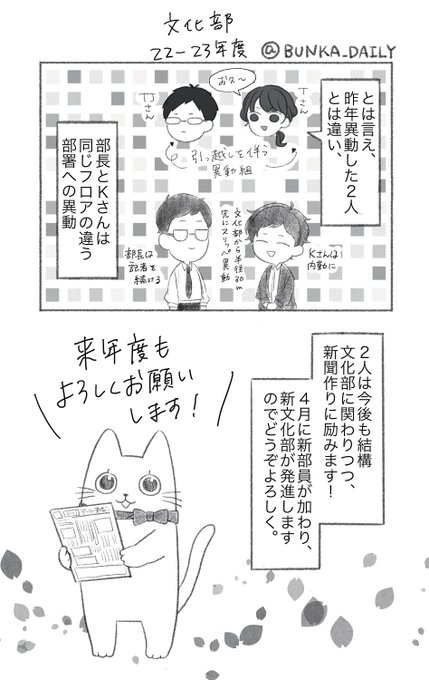 文化部
22-23年度 @BUNKA_DAILY
とは言え、
昨年異動した2人
とは違い、
おひさ〜
Tさん
TJさん
引っ越しを伴う
異動組
部長とKさんは
同じフロアの違う
部署への異動
Kさんは
内勤に
文化部から半径30m
先にスリッパ異動
部長は
記者を
続ける
2人は今後も結構
文化部に関わりつつ、
新聞作りに励みます!
4月に新部員が加わり、
新文化部が発進します
のでどうぞよろしく。
来年度も
よろしくお願い
します!